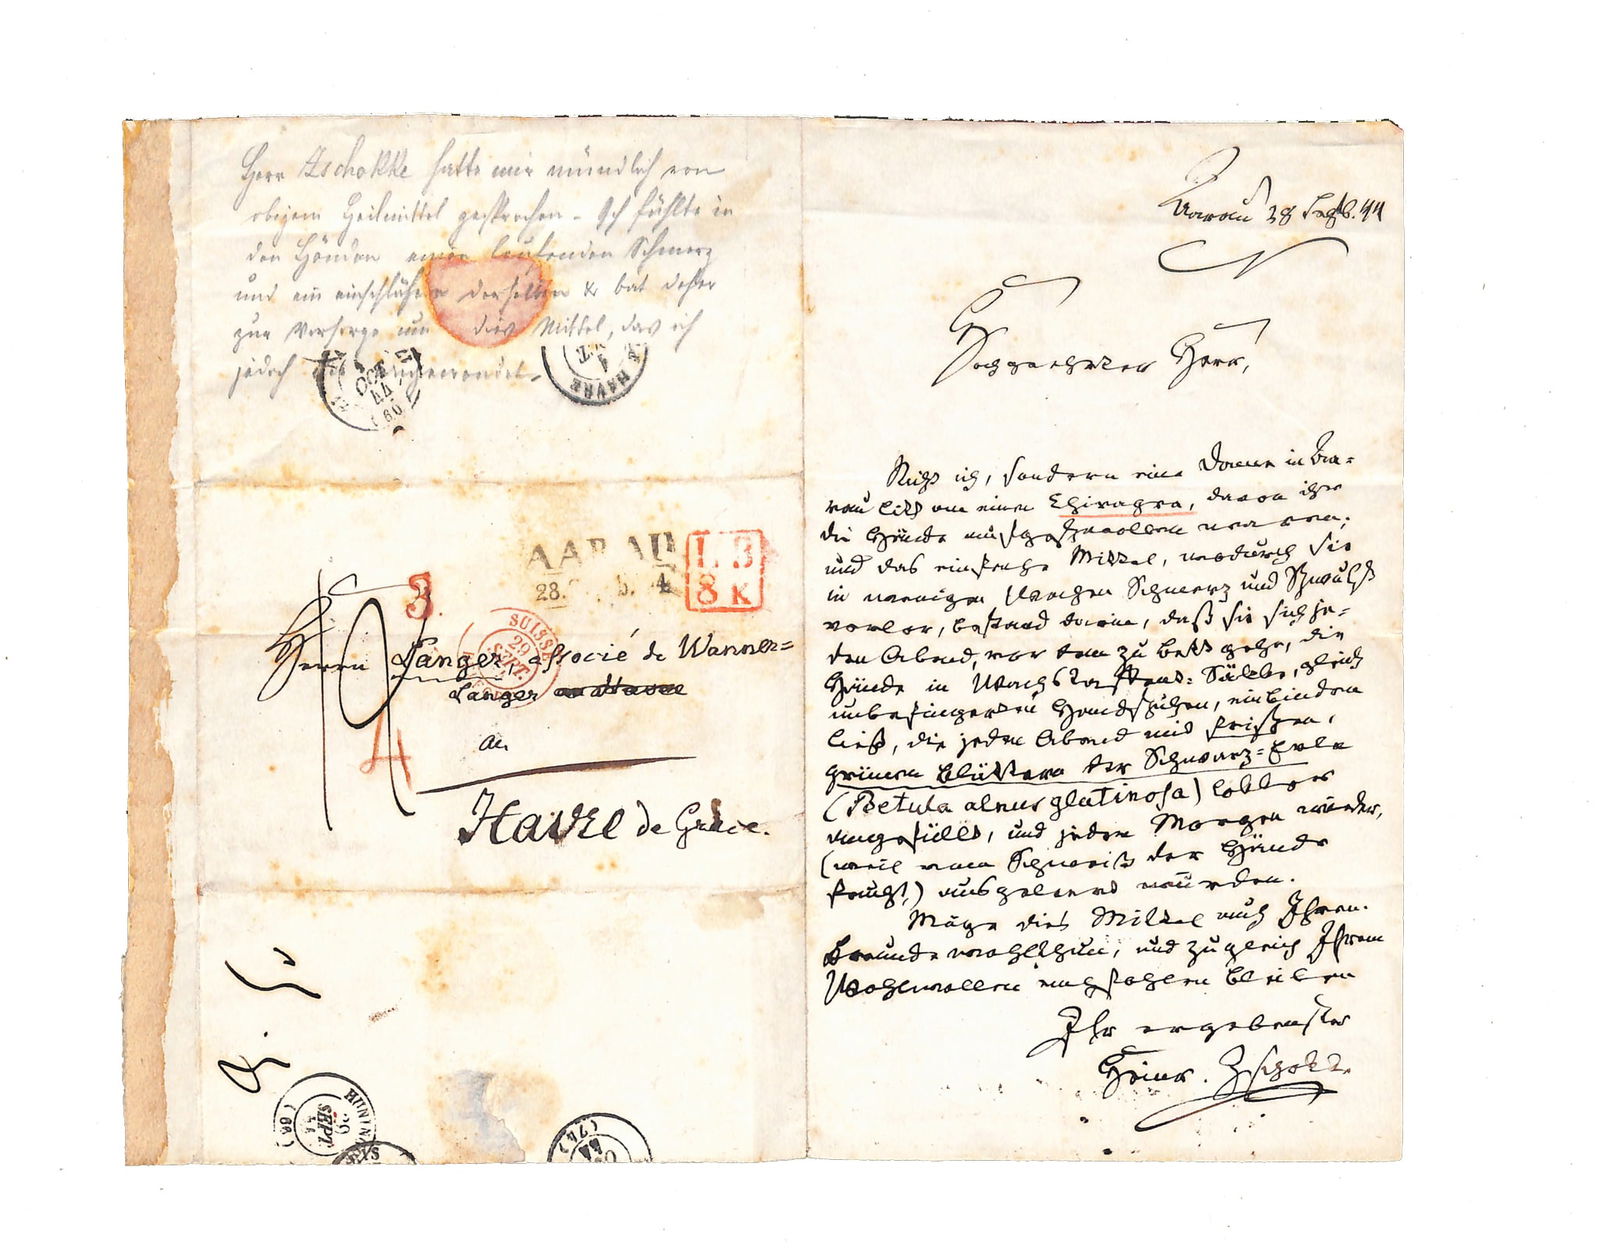 Herr Zschokke hatte mir mündlich von
obigem Heilmittel gesprochen. Ich fühlte in
den Händen einen laufenden Schmerz
und ein einschlafen derselben & bat daher
zur Vorsorge um dies Mittel, das ich
jedoch nie angewendet.
OCT
44
(60)
HAVRE
AARAU
28. 4
L. B
8 K
3.
SUISSE
29
SEPT.
Herrn Langer associé de Wanner=
Langer
au
4
Havre de Grace.
HUNINGUE
29
SEPT.
44
(66)
(74)
Aarau 28 Septb. 44
Hochgeehrter Herr,
Nicht ich, sondern eine Dame in Aa=
rau litt an einem Chiragra, davon ihr
die Hände aufgeschwollen waren;
und das einfache Mittel, wodurch sie
in wenigen Wochen Schmerz und Schwulst
verlor, bestand darin, daß sie sich je=
den Abend, vor dem zu Bett gehn, die
Hände in Wachstaffent=Säcke, gleich
unbefingerten Handschuhen, einbinden
ließ, die jeden Abend mit frischen,
grünen Blättern der Schwarz=Erle
(Betula alnus glutinosa) locker
angefüllt, und jeden Morgen wieder,
(weil vom Schweiß der Hände
feucht,) ausgeleert wurden.
Möge dies Mittel auch Ihrem
Freunde wohlthun, und zugleich Ihrem
Wohlwollen empfohlen bleiben
Ihr ergebenster
Heinr. Zschokke